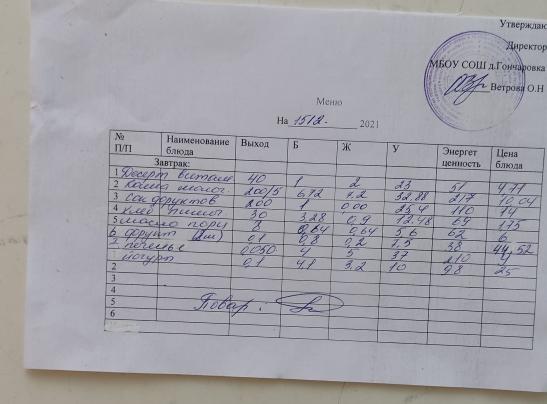 Утверждаю
Директор
МБОУ СОШ д.Гончаровка
Ветрова О.Н
Меню
На 15.12. 2021
№ П/П Наименование блюда Выход Б Ж У Энергет ценность Цена блюда
Завтрак:
1 Десерт витам. 40 1 2 23 51 4,71
2 Каша молоч. 200/5 6,72 7,2 32,88 217 10,04
3 Сок фруктов 200 1 0,00 25,4 110 14
4 Хлеб пшен. 30 3,28 0,9 12,48 69 1,75
5 масло порц 8 0,64 5,6 62 6
6 фрукт 0,1 0,8 0,2 7,5 38
7 печенье 0,050 4 5 37 210
йогурт 0,1 4,1 3,2 10 98 25
2
3
4
5
6
Повар: